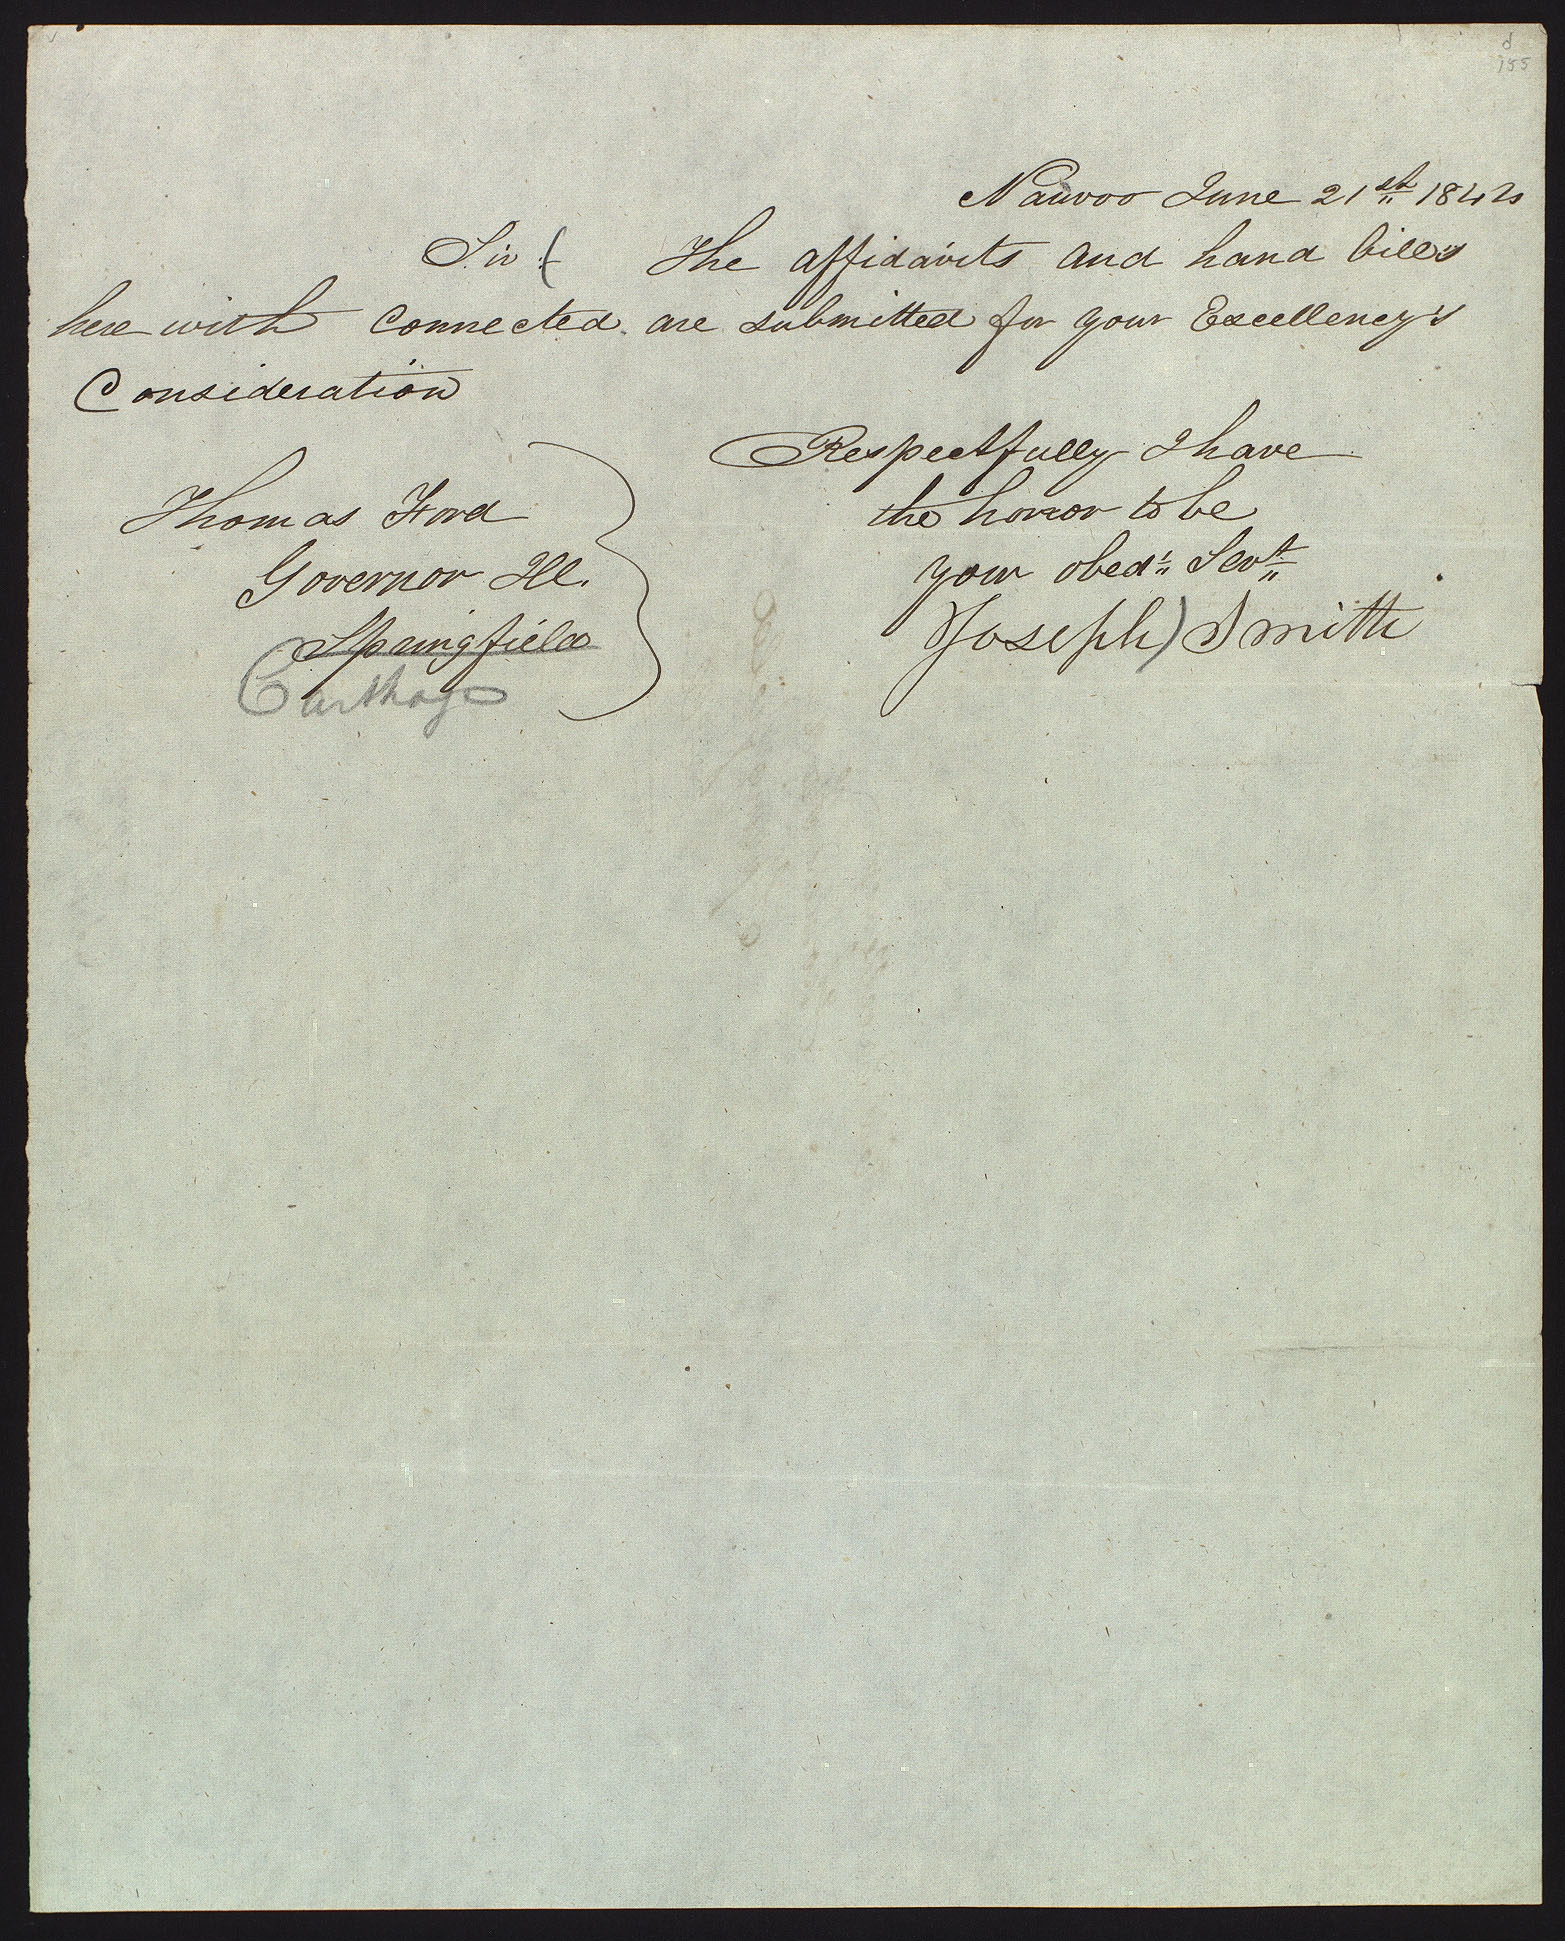 155
Nauvoo June 21st 1844
Sir. The affidavits and hand bills
here with Connected. are submitted for your Excellency's
Consideration
Respectfully I have
the honor to be
your obedt Servt
Joseph Smith
Thomas Ford
Governor Ill.
Springfield
Carthage